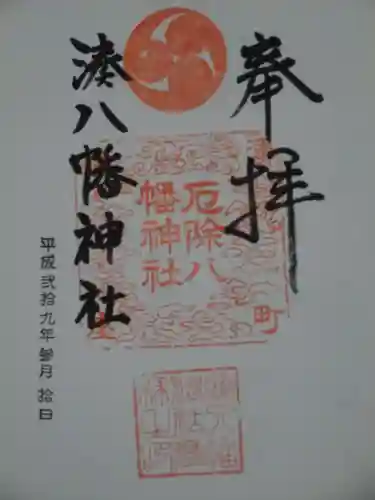 奉拝
厄除八
幡神社
町
湊八幡神社
平成弐拾九年参月拾日